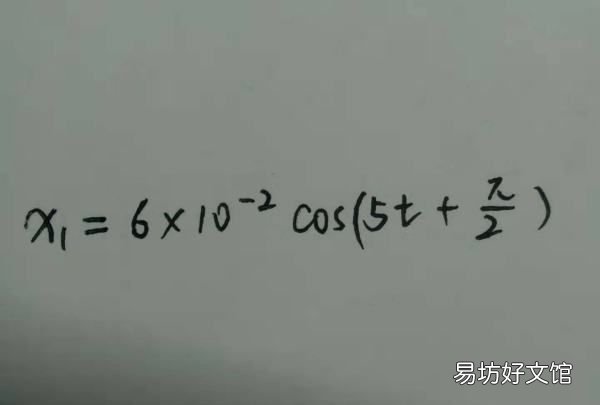 x₁ = 6×10⁻² cos(5t + π/2)
易坊好文馆